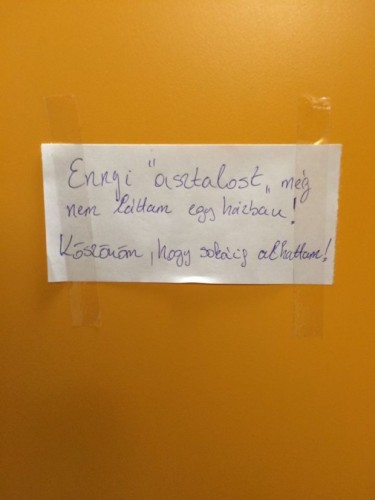 Ennyi "asztalost„ még
nem láttam egy házban!
Köszönöm, hogy sokáig alhattam!